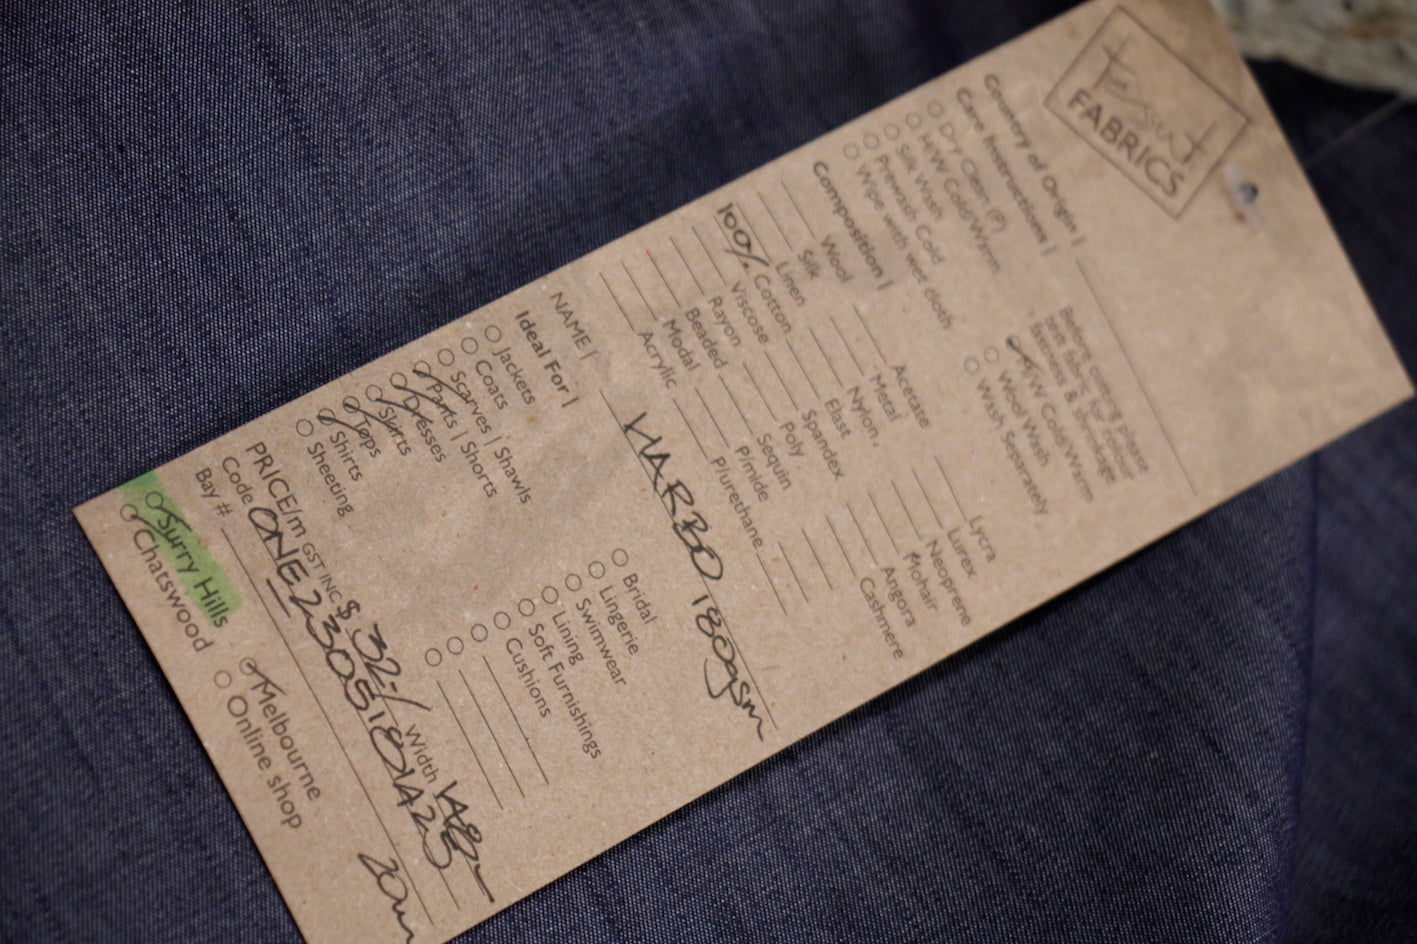 tessuti
FABRICS
Country of Origin |
Care Instructions |
Dry Clean (P)
H/W Cold/Warm
Silk Wash
Prewash Cold
Wipe with wet cloth
Before cutting please
test fabric for colour
fastness & shrinkage
M/W Cold/Warm
Wool Wash
Wash Separately
Composition |
Wool
Silk
Linen
100% Cotton
Viscose
Rayon
Beaded
Modal
Acrylic
Acetate
Metal
Nylon
Elast
Spandex
Poly
Sequin
P/mide
P/urethane
Lycra
Lurex
Neoprene
Mohair
Angora
Cashmere
NAME | HARBO 180gsm
Ideal For |
Jackets
Coats
Scarves | Shawls
Pants | Shorts
Dresses
Skirts
Tops
Shirts
Sheeting
Bridal
Lingerie
Swimwear
Lining
Soft Furnishings
Cushions
PRICE/m GST INC $ 32-/ Width 148
Code ONE23051801A23
Bay # 20m
Surry Hills
Chatswood
Melbourne
Online shop